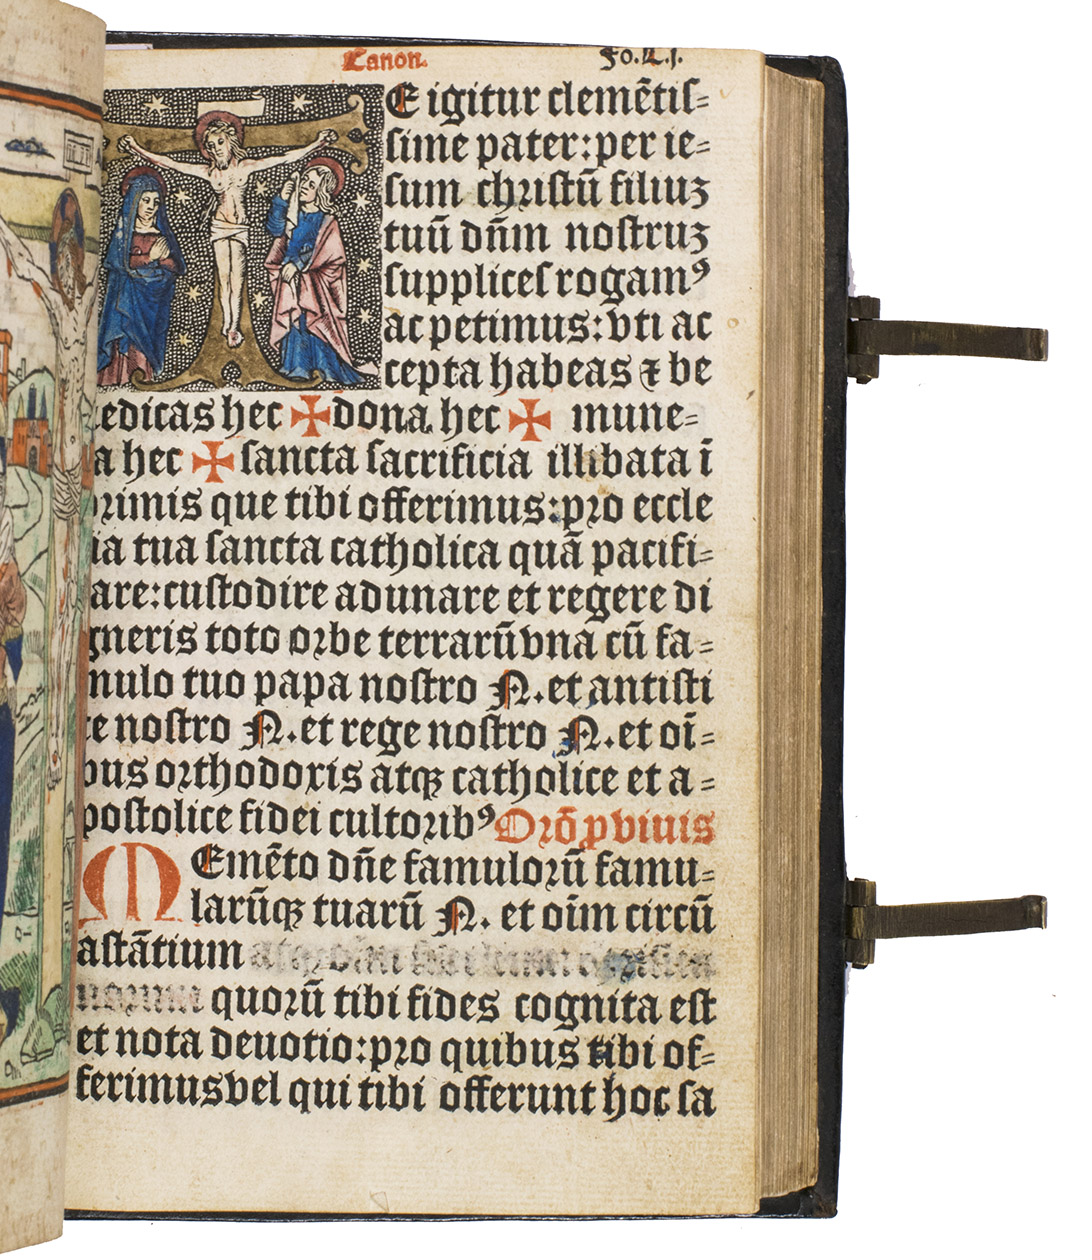 Canon. Fo. L.j.
E igitur clemētiſ=
ſime pater:per ie=
ſum chriſtū filiuʒ
tuū dn̄m noſtruʒ
ſuppliceſ rogamꝰ
ac petimus:vti ac
cepta habeas ⁊ be
edicas hec ✠ dona hec ✠ mune=
a hec ✠ ſancta ſacrificia illibata ī
primis que tibi offerimus:pro eccle
ia tua ſancta catholica quā pacifi=
are:cuſtodire adunare et regere di
gneris toto orbe terrarū vna cū fa=
mulo tuo papa noſtro N. et antiſti
te noſtro N. et rege noſtro N. et oī=
bus orthodoxis atqꝫ catholice et a=
poſtolice fidei cultoribꝰ Orō ꝓ viuis
MEmēto dn̄e famulorū famu=
larūqꝫ tuarū N. et oīm circū
aſtātium
quorū tibi fides cognita eſt
et nota deuotio:pro quibus tibi of=
ferimus vel qui tibi offerunt hoc ſa